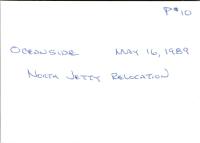 P#10
OCEANSIDE MAY 16, 1989
NORTH JETTY RELOCATION